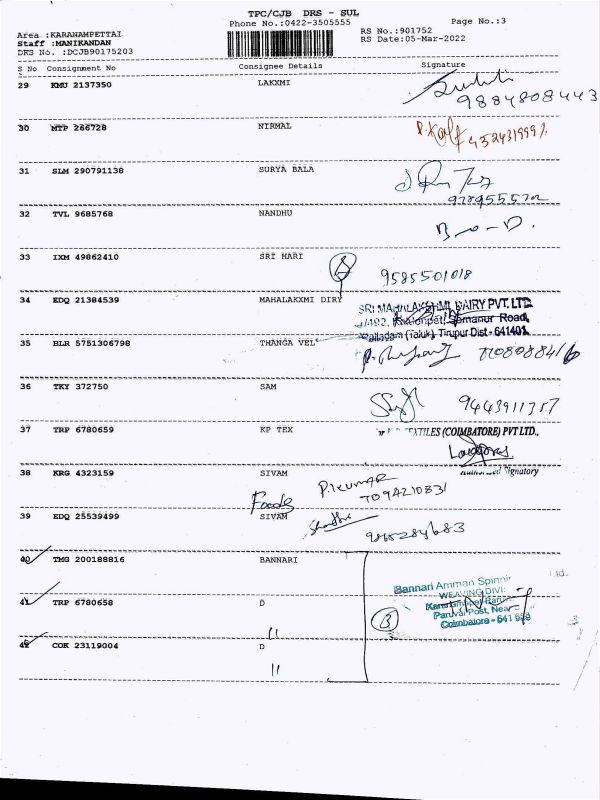 TPC/CJB DRS - SUL
Phone No.:0422-3505555
Page No.:3
Area :KARANAMPETTAI
RS No.:901752
Staff :MANIKANDAN
RS Date:05-Mar-2022
DRS No. :DCJB90175203
S No Consignment No Consignee Details Signature
29 KMU 2137350 LAKXMI
9884808443
30 MTP 266728 NIRMAL
31 SLM 290791138 SURYA BALA
32 TVL 9685768 NANDHU
33 IXM 49862410 SRI HARI
9585501018
34 EDQ 21384539 MAHALAXMI DIRY
SRI MAHALAKSHMI DAIRY PVT. LTD.
Somanur Road,
Palladam (Taluk), Tirupur Dist - 641401.
35 BLR 5751306798 THANGA VEL
36 TKY 372750 SAM
9443911357
37 TRP 6780659 KP TEX
TEXTILES (COIMBATORE) PVT LTD.,
Signatory
38 KRG 4323159 SIVAM
P.Kumar
Foods
39 EDQ 25539499 SIVAM
40 TMG 200188816 BANNARI
Bannari Amman Spinni Ltd.
WEAVING DIVI:
41 TRP 6780658 D
Paruvai Post, Near
Coimbatore - 641 658
B
11
42 COK 23119004 D
11